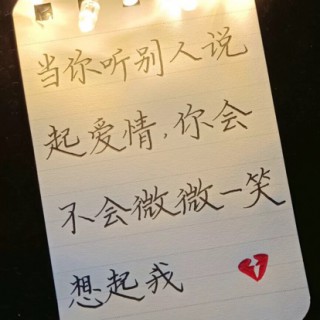 当你听别人说
起爱情,你会
不会微微一笑
想起我